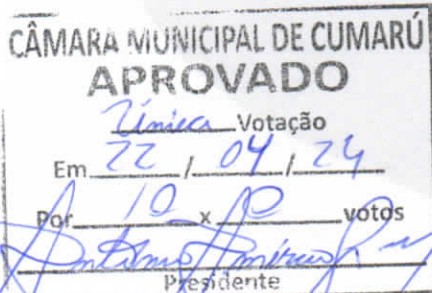 CÂMARA MUNICIPAL DE CUMARÚ
APROVADO
Única Votação
Em 22 / 04 / 24
Por 10 x 0 votos
Presidente